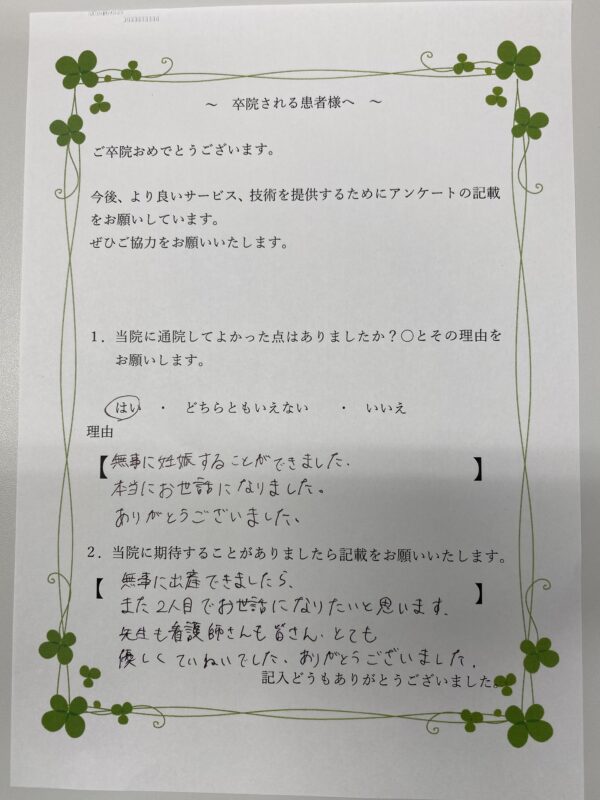 ～ 卒院される患者様へ ～
ご卒院おめでとうございます。
今後、より良いサービス、技術を提供するためにアンケートの記載
をお願いしています。
ぜひご協力をお願いいたします。
１．当院に通院してよかった点はありましたか？〇とその理由を
お願いします。
はい ・ どちらともいえない ・ いいえ
理由
【無事に妊娠することができました.
本当にお世話になりました。
ありがとうございました。】
２．当院に期待することがありましたら記載をお願いいたします。
【無事に出産できましたら、
また2人目でお世話になりたいと思います.
先生も看護師さんも皆さん、とても
優しくていねいでした、ありがとうございました.】
記入どうもありがとうございました。